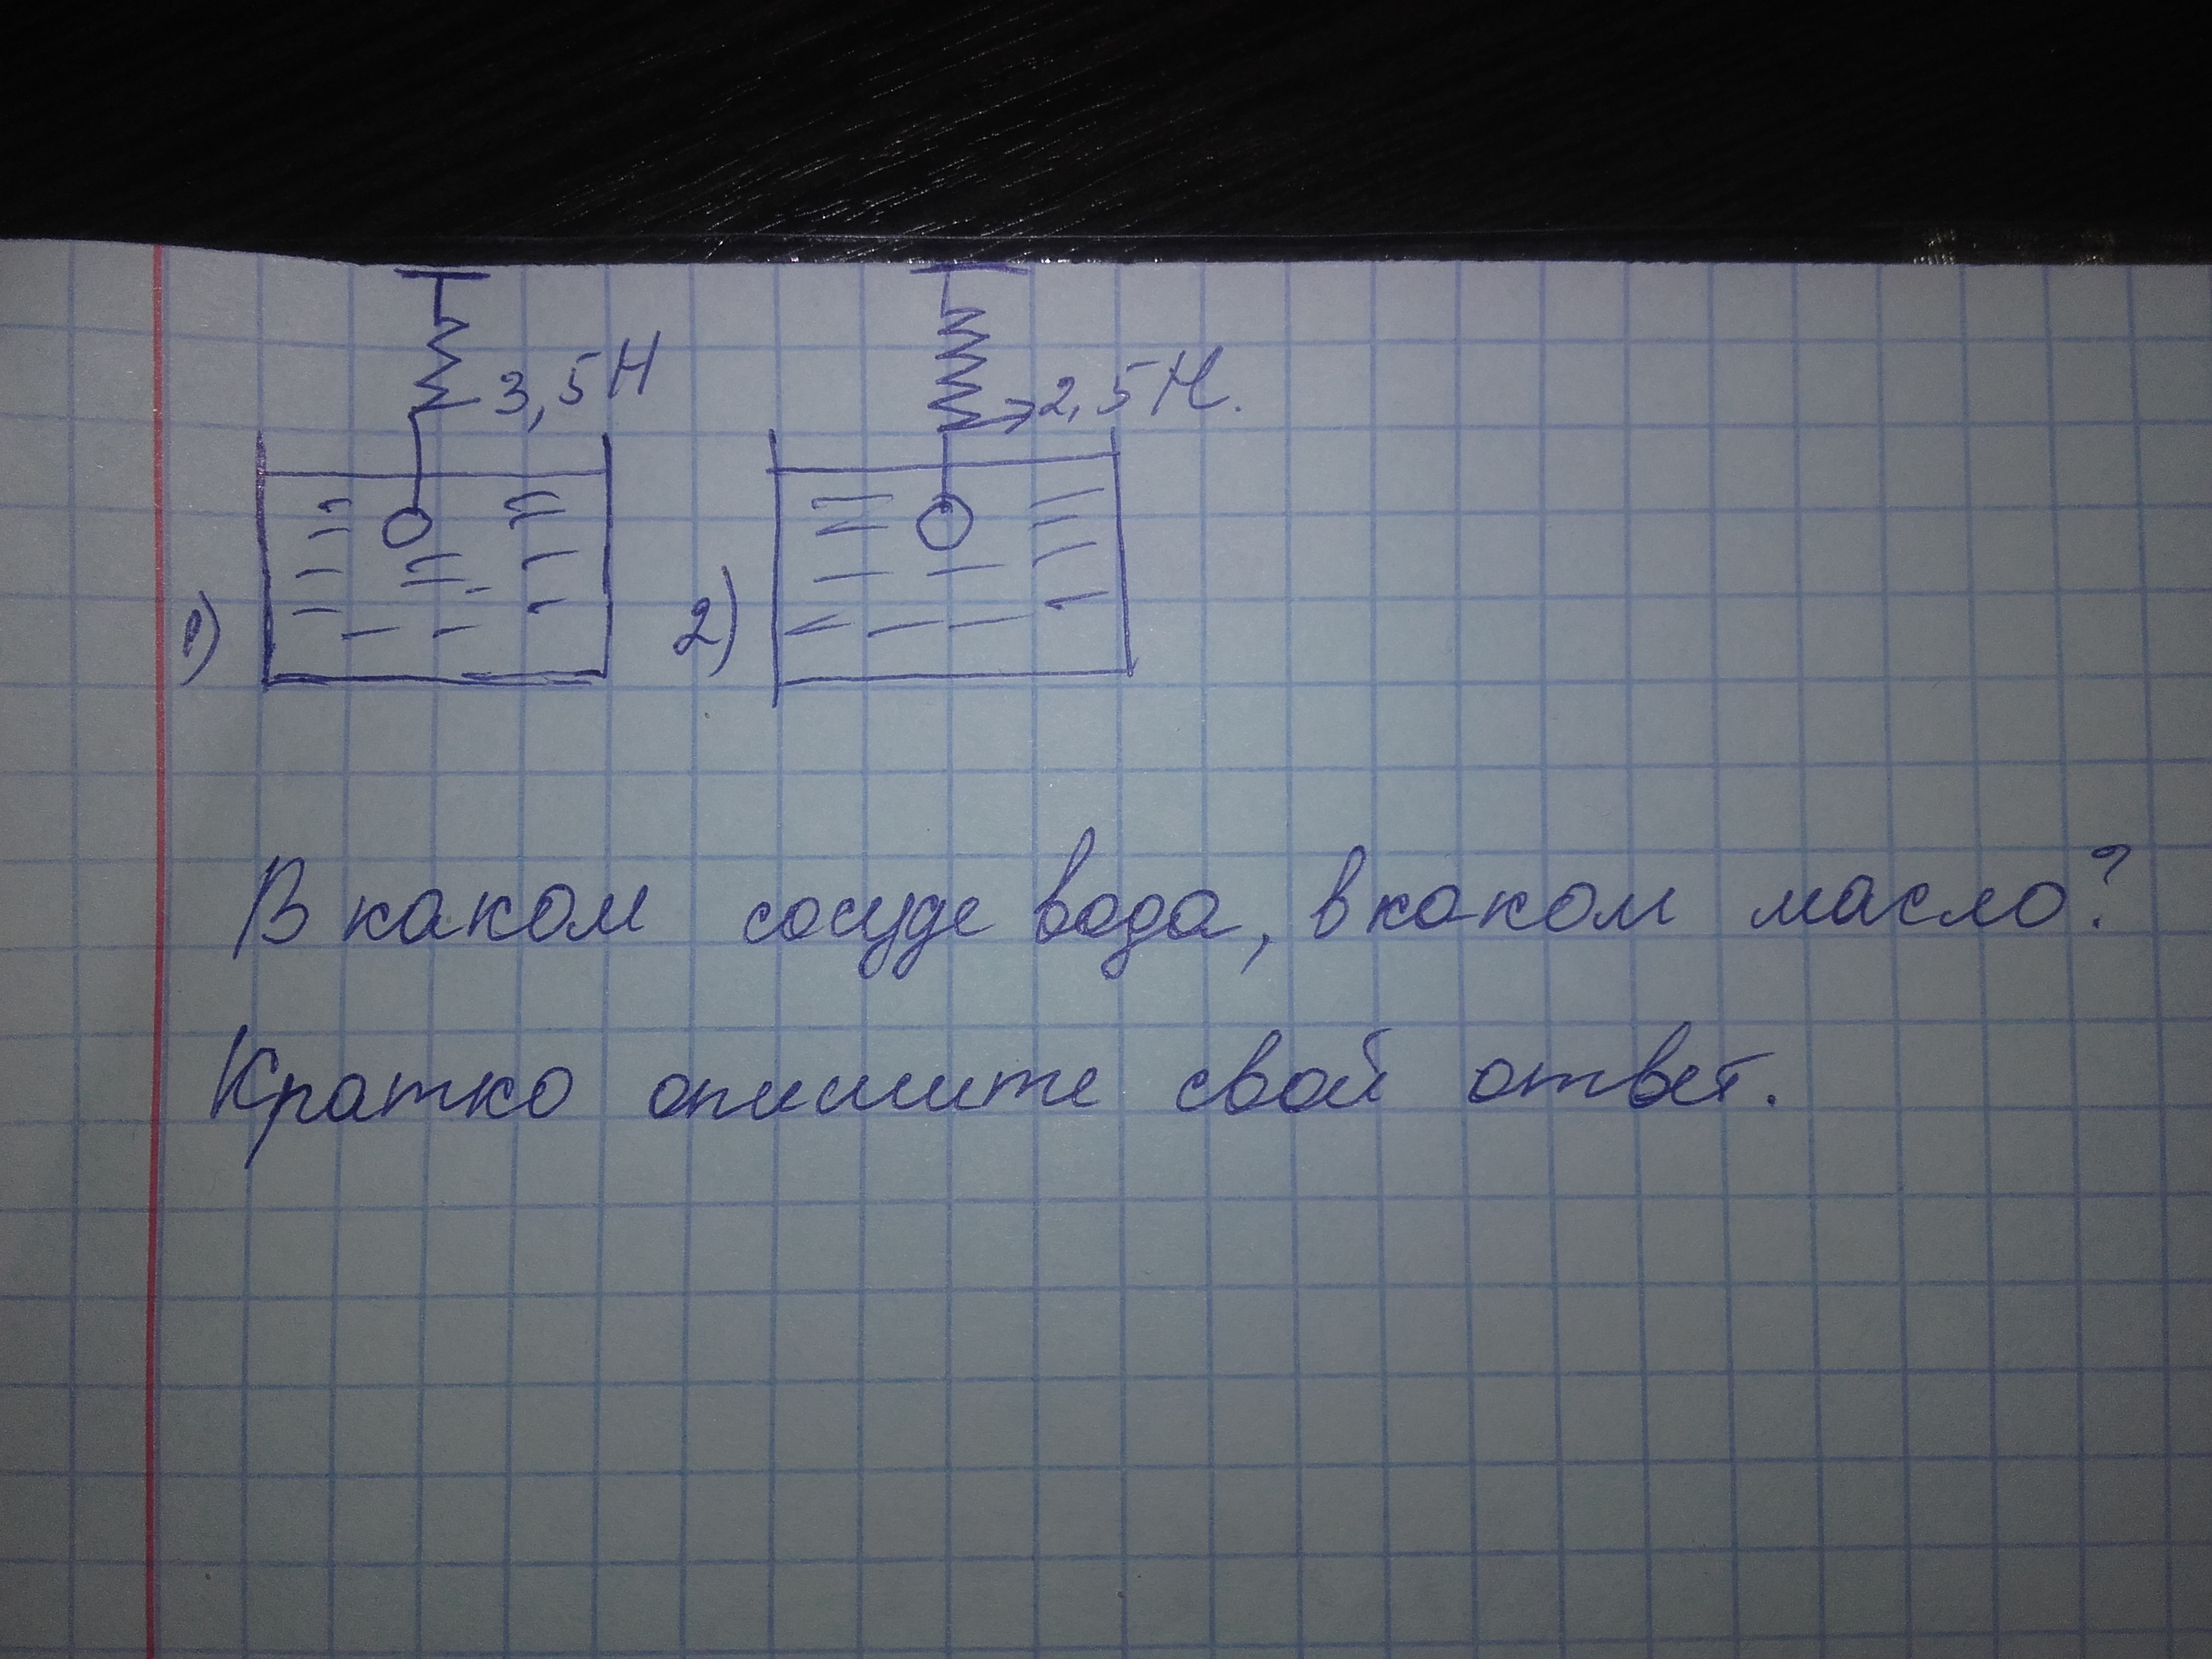 3,5 Н
2,5 Н.
1)
2)
В каком сосуде вода, в каком масло?
Кратко опишите свой ответ.